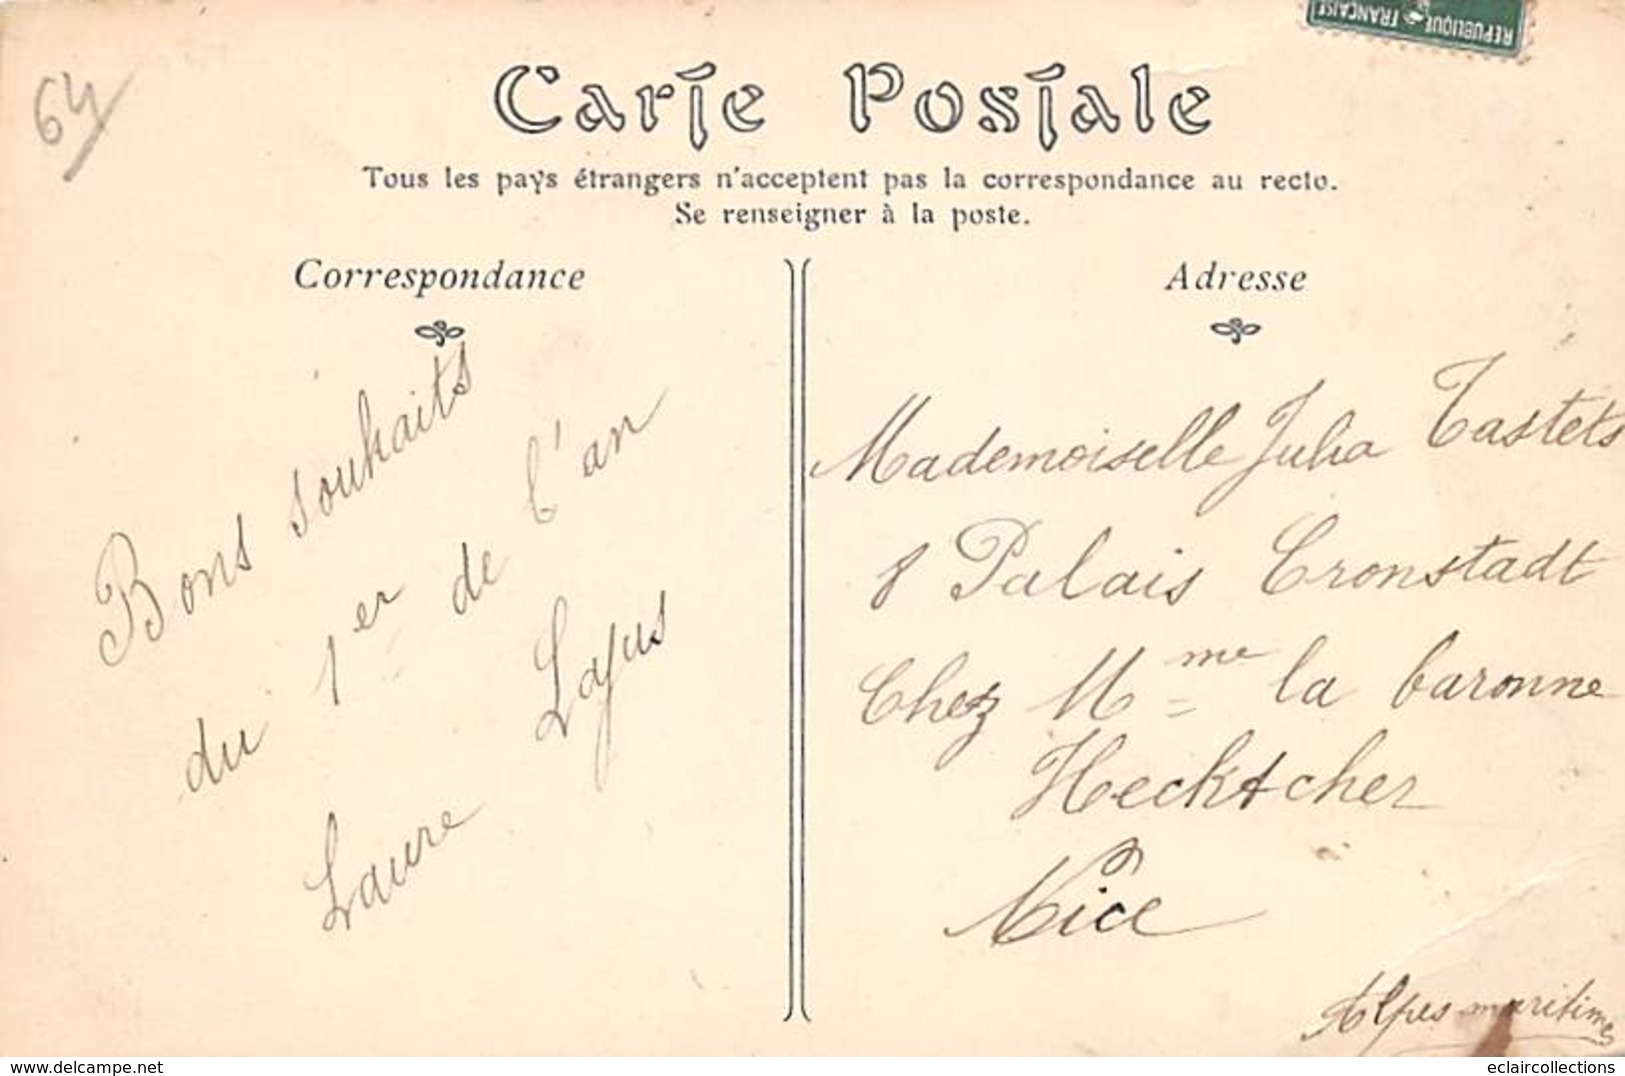 64
RÉPUBLIQUE FRANÇAISE
Carte Postale
Tous les pays étrangers n'acceptent pas la correspondance au recto.
Se renseigner à la poste.
Correspondance
Bons souhaits
du 1er de l'an
Laure Lajus
Adresse
Mademoiselle Julia Tastets
8 Palais Cronstadt
Chez Mme la baronne
Hecktcher
Nice
Alpes maritimes
delcampe.net
eclaircollections